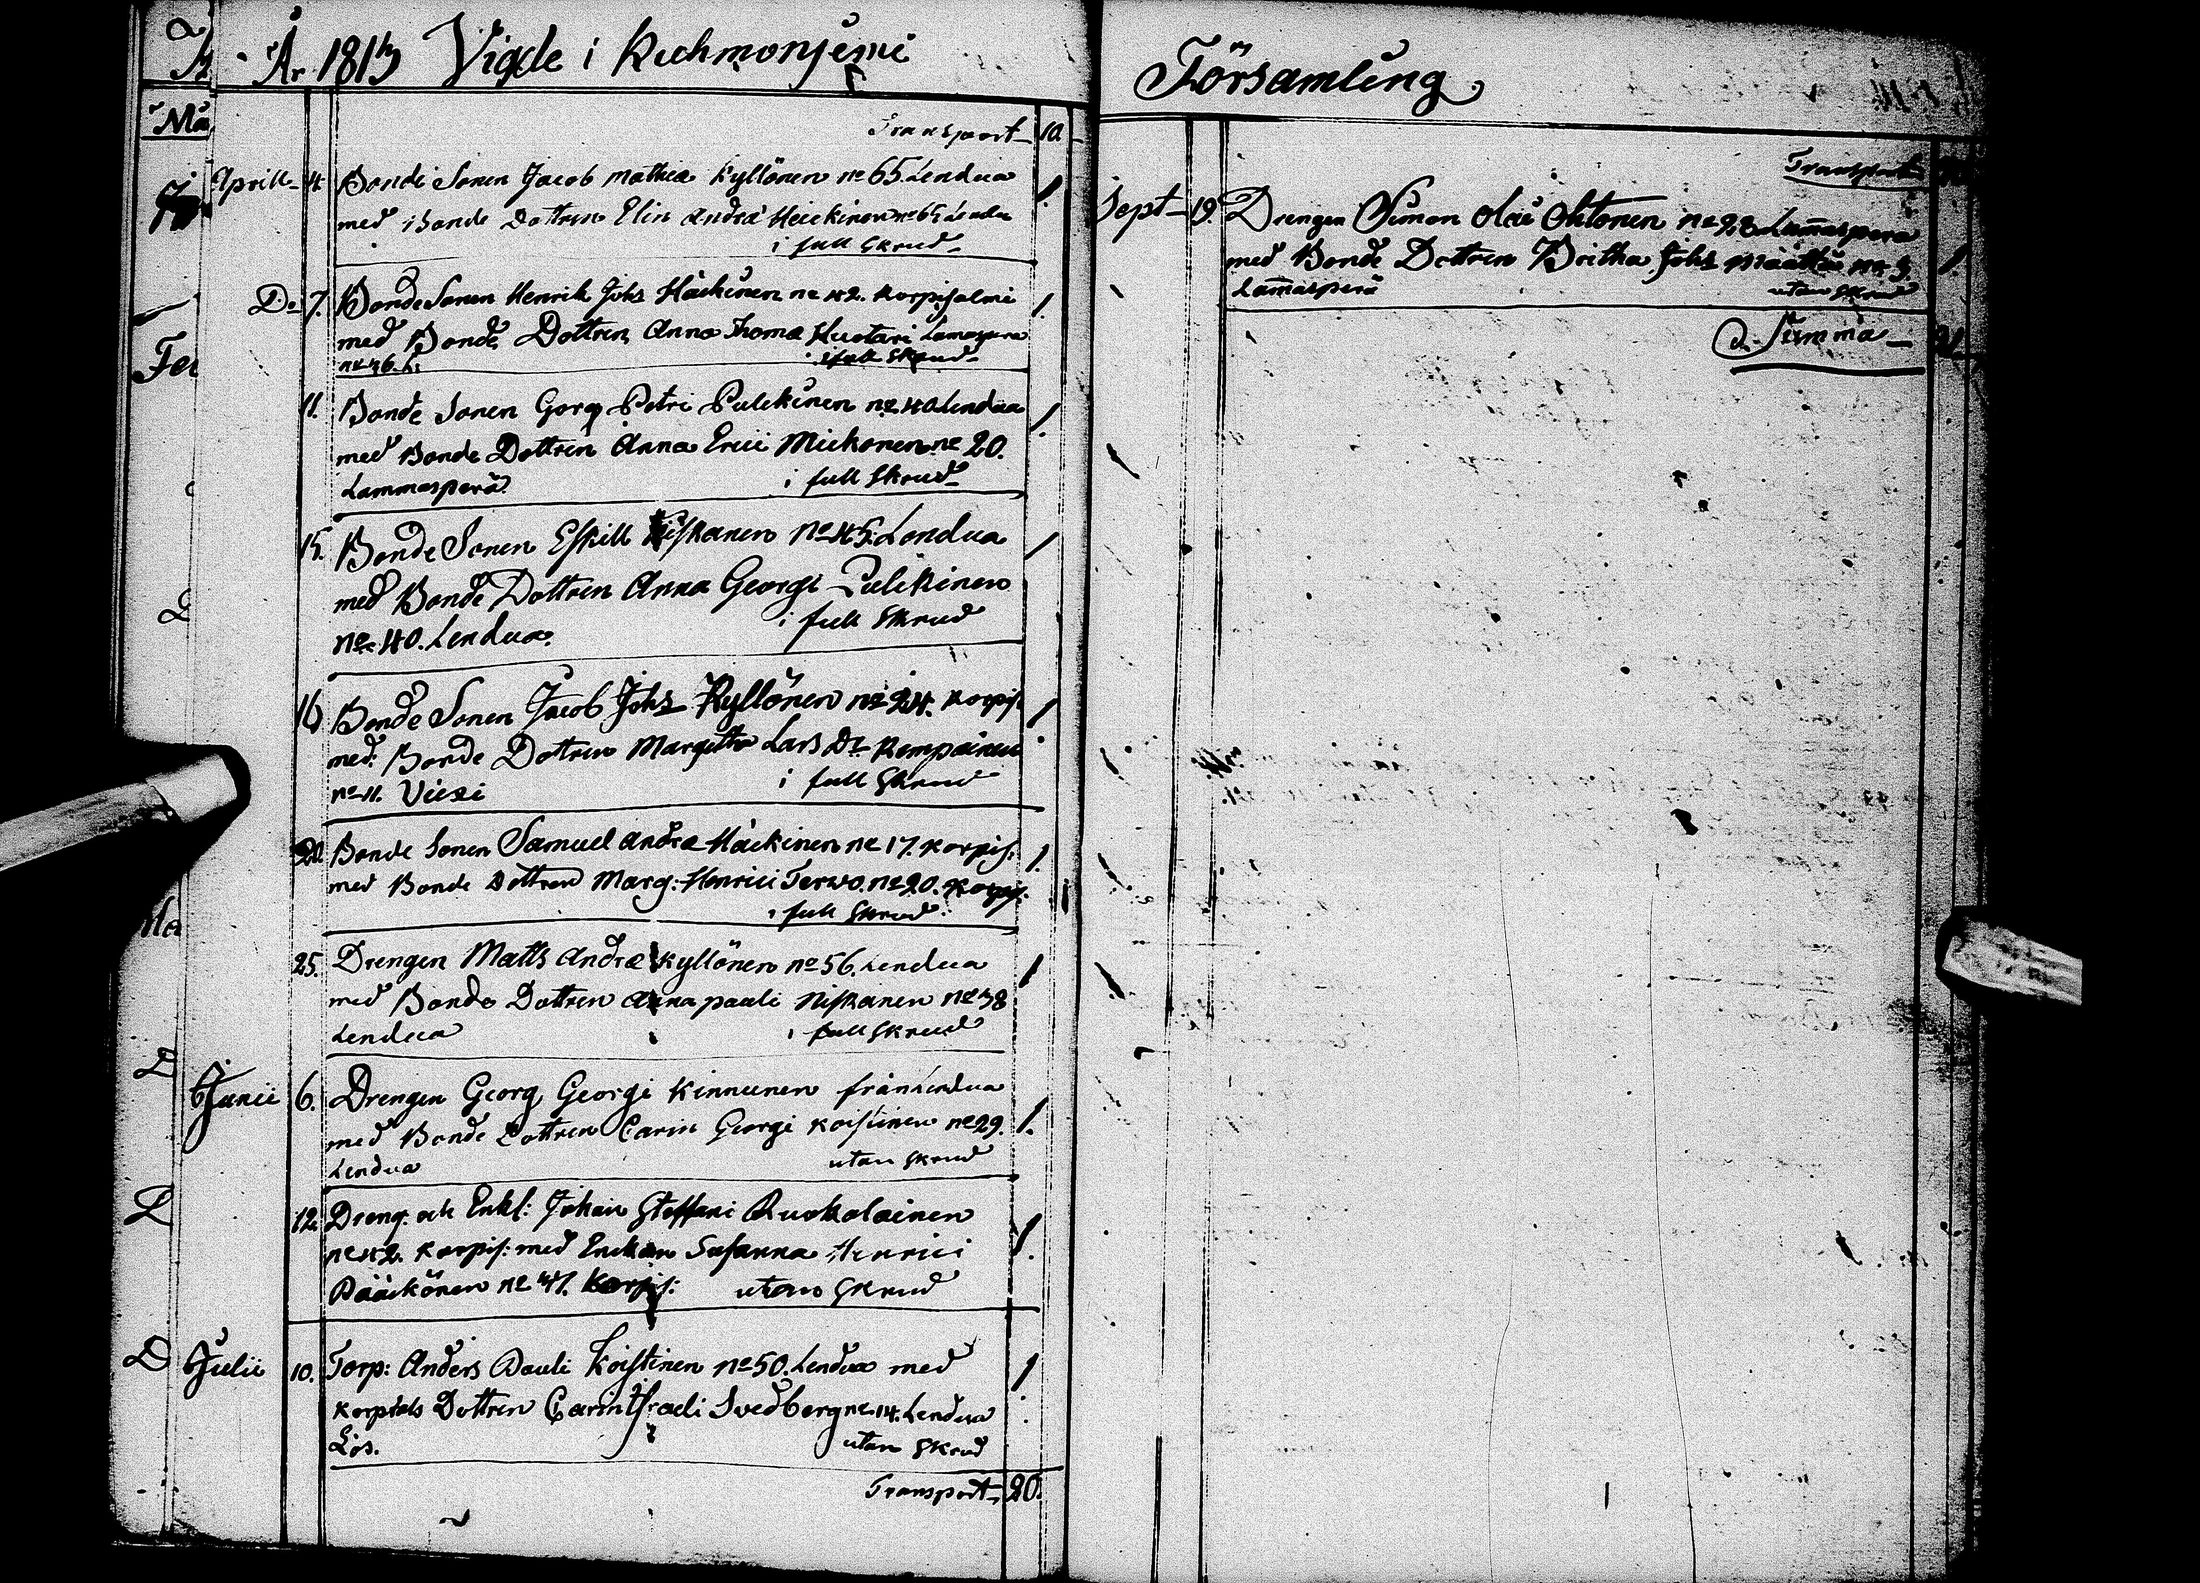 År 1813 Vigde i Kuchmonjemi
Transport 10.
Aprill 4. Bonde Sonen Jacob Mathiæ Kyllönen no 65 Lendua 1.
med Bonde Dottren Elin Andræ Heickinen no 65 Lendu
i full Skrud
Do 7. Bonde Sonen Henrik Johs Häickinen no 42. Korpisalmi 1.
med Bonde Dottren Anna Thomæ Huotari Lamaspera
no 36. L. i full Skrud
11. Bonde Sonen Georg Petri Pulckinen no 40 Lendua 1.
med Bonde Dottren Anna Ericii Mickonen no 20.
Lammasperä i full Skrud
15. Bonde Sonen Eskill Niskanen No 45. Lendua 1
med Bonde Dottren Anna Georgi Pulckinen
no 40. Lendua. i full Skrud
16 Bonde Sonen Jacob Johs Kyllönen no 24. Korpis. 1.
med Bonde Dottren Margetha Lars Dr Kempainen
no 11. Viexi i full Skrud
20. Bonde Sonen Samuel Andræ Häickinen no 17. Korpis. 1.
med Bonde Dottren Marg: Henrici Terwo. no 20. Korpis.
i full Skrud
25. Drengen Matts Andræ Kyllönen no 56. Lendua 1
med Bonde Dottren Anna Pauli Niskanen no 38
Lendua i full Skrud
Junii 6. Drengen Georg Georgi Kinnunen från Lendua
med Bonde Dottren Carin Georgi Koistinen no 29. 1.
Lendua utan Skrud
12. Dreng. och Enkl: Johan Steffani Ruokolainen
no 42. Korpis: med Enckan Susanna Henrici 1.
Pääckönen no 41. Korpis: utan Skrud
Julii 10. Torp: Anders Pauli Koistinen no 50. Lendua med 1
Korprals Dottren Carin Israeli Svedberg no 14. Lendua
Lös. utan Skrud
Transport 20.
Församling
Transport
Sept 19. Drengen Simon Olai Ohtonen no 28 Lam̄aspera
med Bonde Dottren Britha Johs Määttä no 3. 1.
Lam̄asperä utan Skrud
Summa 21